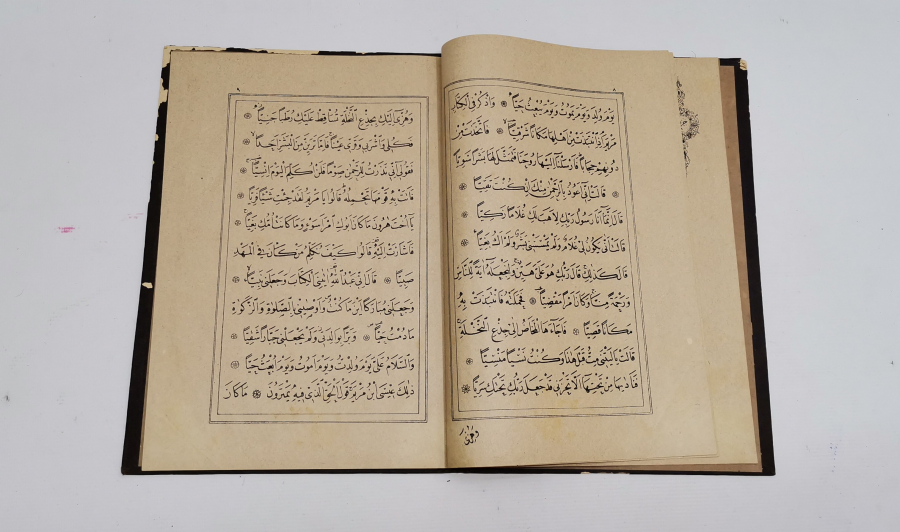 ٨
يَوْمَ وُلِدَ وَيَوْمَ يَمُوتُ وَيَوْمَ يُبْعَثُ حَيًّا ۞ وَاذْكُرْ فِي الْكِتَابِ
مَرْيَمَ إِذِ انْتَبَذَتْ مِنْ أَهْلِهَا مَكَانًا شَرْقِيًّا ۞ فَاتَّخَذَتْ مِنْ
دُونِهِمْ حِجَابًا فَأَرْسَلْنَا إِلَيْهَا رُوحَنَا فَتَمَثَّلَ لَهَا بَشَرًا سَوِيًّا
۞ قَالَتْ إِنِّي أَعُوذُ بِالرَّحْمٰنِ مِنْكَ إِنْ كُنْتَ تَقِيًّا ۞
قَالَ إِنَّمَا أَنَا رَسُولُ رَبِّكِ لِأَهَبَ لَكِ غُلَامًا زَكِيًّا ۞
قَالَتْ أَنّٰى يَكُونُ لِي غُلَامٌ وَلَمْ يَمْسَسْنِي بَشَرٌ وَلَمْ أَكُ بَغِيًّا ۞
قَالَ كَذٰلِكِ قَالَ رَبُّكِ هُوَ عَلَيَّ هَيِّنٌ وَلِنَجْعَلَهُ آيَةً لِلنَّاسِ
وَرَحْمَةً مِنَّا وَكَانَ أَمْرًا مَقْضِيًّا ۞ فَحَمَلَتْهُ فَانْتَبَذَتْ بِهِ
مَكَانًا قَصِيًّا ۞ فَأَجَاءَهَا الْمَخَاضُ إِلٰى جِذْعِ النَّخْلَةِ
قَالَتْ يَا لَيْتَنِي مِتُّ قَبْلَ هٰذَا وَكُنْتُ نَسْيًا مَنْسِيًّا ۞
فَنَادٰيهَا مِنْ تَحْتِهَا أَلَّا تَحْزَنِي قَدْ جَعَلَ رَبُّكِ تَحْتَكِ سَرِيًّا ۞
وَهُزِّي
٩
وَهُزِّي إِلَيْكِ بِجِذْعِ النَّخْلَةِ تُسَاقِطْ عَلَيْكِ رُطَبًا جَنِيًّا ۞
فَكُلِي وَاشْرَبِي وَقَرِّي عَيْنًا فَإِمَّا تَرَيِنَّ مِنَ الْبَشَرِ أَحَدًا ۞
فَقُولِي إِنِّي نَذَرْتُ لِلرَّحْمٰنِ صَوْمًا فَلَنْ أُكَلِّمَ الْيَوْمَ إِنْسِيًّا ۞
فَأَتَتْ بِهِ قَوْمَهَا تَحْمِلُهُ قَالُوا يَا مَرْيَمُ لَقَدْ جِئْتِ شَيْئًا فَرِيًّا ۞
يَا أُخْتَ هٰرُونَ مَا كَانَ أَبُوكِ امْرَأَ سَوْءٍ وَمَا كَانَتْ أُمُّكِ بَغِيًّا ۞
فَأَشَارَتْ إِلَيْهِ قَالُوا كَيْفَ نُكَلِّمُ مَنْ كَانَ فِي الْمَهْدِ
صَبِيًّا ۞ قَالَ إِنِّي عَبْدُ اللّٰهِ آتَانِيَ الْكِتَابَ وَجَعَلَنِي نَبِيًّا ۞
وَجَعَلَنِي مُبَارَكًا أَيْنَ مَا كُنْتُ وَأَوْصَانِي بِالصَّلٰوةِ وَالزَّكٰوةِ
مَا دُمْتُ حَيًّا ۞ وَبَرًّا بِوَالِدَتِي وَلَمْ يَجْعَلْنِي جَبَّارًا شَقِيًّا ۞
وَالسَّلَامُ عَلَيَّ يَوْمَ وُلِدْتُ وَيَوْمَ أَمُوتُ وَيَوْمَ أُبْعَثُ حَيًّا ۞
ذٰلِكَ عِيسَى ابْنُ مَرْيَمَ قَوْلَ الْحَقِّ الَّذِي فِيهِ يَمْتَرُونَ ۞ مَا كَانَ